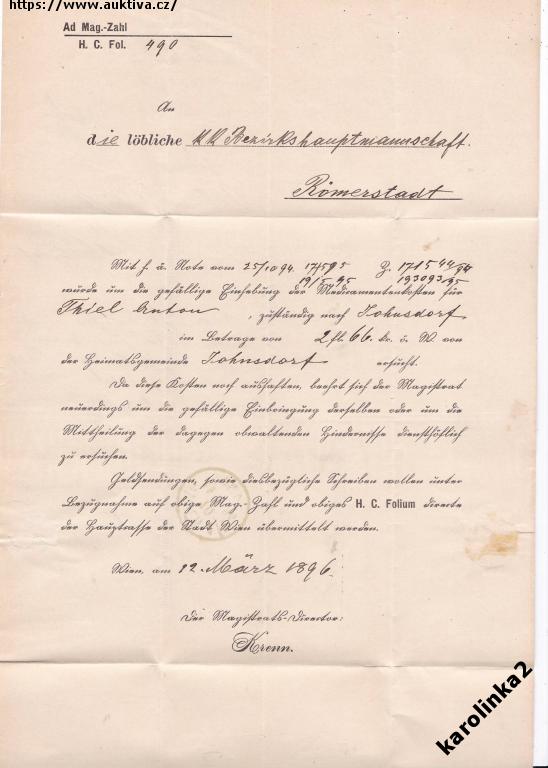 https://www.auktiva.cz/
Ad Mag.-Zahl
H. C. Fol. 490
An
die löbliche kk Bezirkshauptmannschaft.
Römerstadt
Mit h. ä. Note vom 25/10 94. 17/5 95 Z. 1715 44/94
19/5 95 193093/95
würde um die gefällige Einhebung der Medicamentenkosten für
Thiel Anton, zuständig nach Johnsdorf
im Betrage von 2 fl. 66 kr. ö. W. von
der Heimatsgemeinde Johnsdorf ersucht.
Da diese Kosten noch aushaften, beehrt sich der Magistrat
neuerdings um die gefällige Einbringung derselben oder um die
Mittheilung der dagegen obwaltenden Hindernisse diensthöflich
zu ersuchen.
Geldsendungen, sowie diesbezügliche Schreiben wollen unter
Bezugnahme auf obige Mag.-Zahl und obiges H. C. Folium directe
der Hauptcasse der Stadt Wien übermittelt werden.
Wien, am 12. März 1896.
Der Magistrats-Director:
Krenn.
karolinka2